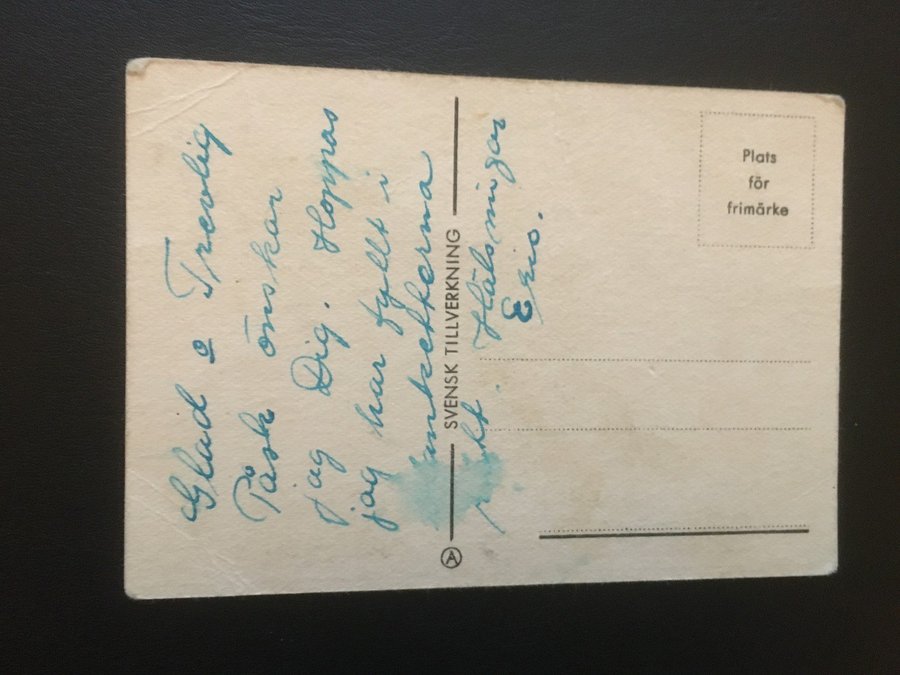 Glad o Trevlig
Påsk önskar
jag Dig. Hoppas
jag har fyllt i
Hälsningar
Eric.
SVENSK TILLVERKNING
A
Plats
för
frimärke